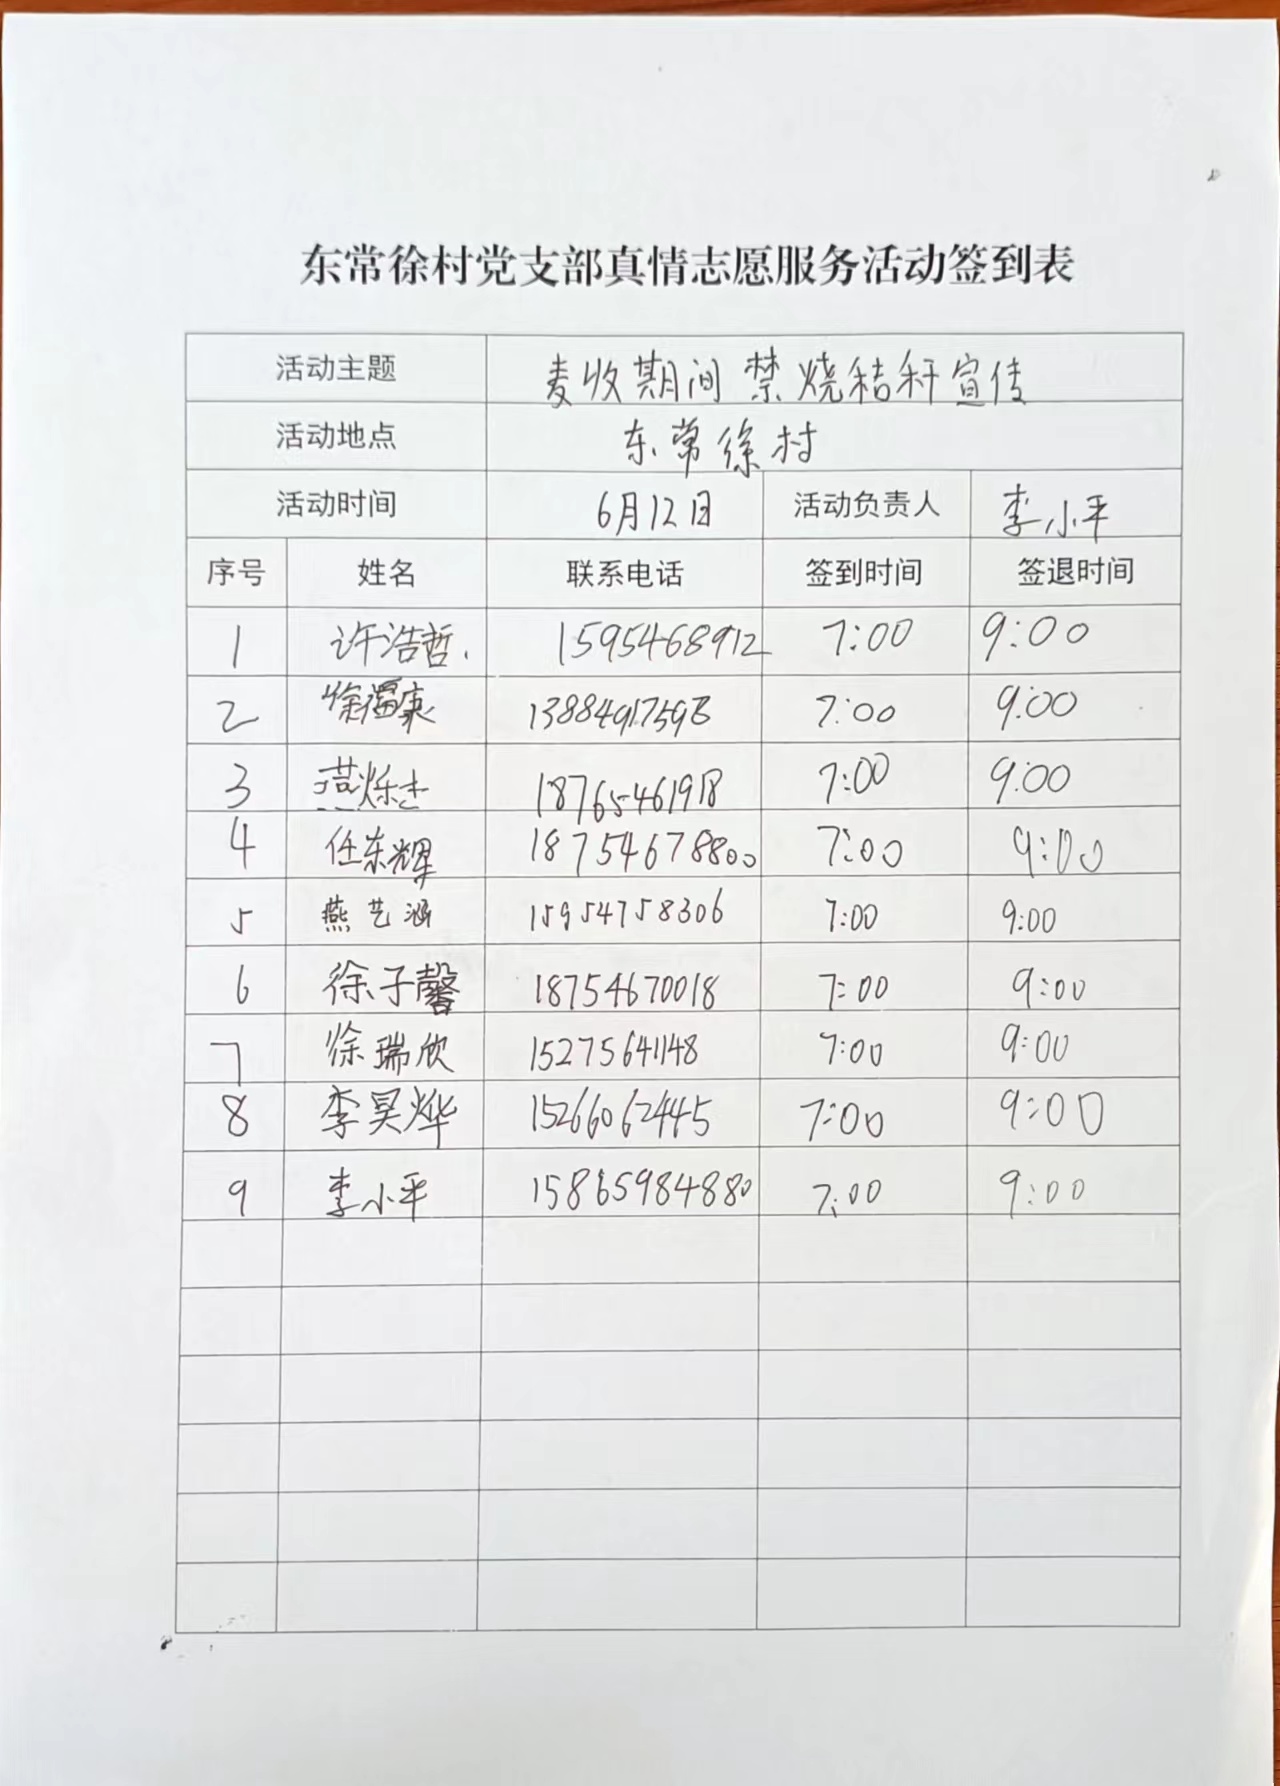 东常徐村党支部真情志愿服务活动签到表
活动主题 麦收期间禁烧秸秆宣传
活动地点 东常徐村
活动时间 6月12日 活动负责人 李小平
序号 姓名 联系电话 签到时间 签退时间
1 许浩哲. 1595468912 7:00 9:00
2 徐福康 7:00 9:00
3 燕烁杰 18765461918 7:00 9:00
4 任东辉 18754678800 7:00 9:00
5 燕艺涵 15954758306 7:00 9:00
6 徐子馨 18754670018 7:00 9:00
7 徐瑞欣 15275641148 7:00 9:00
8 李昊烨 15266062445 7:00 9:00
9 李小平 15865984880 7:00 9:00